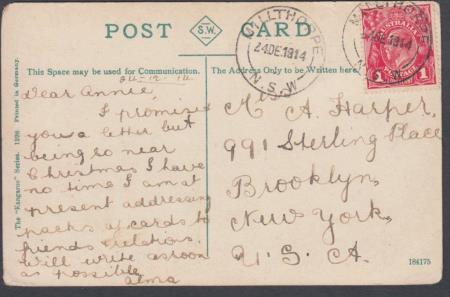 POST CARD
S.W.
MILLTHORPE
24 DE 1914
N.S.W
MILLTHORPE
DE 1914
AUSTRALIA
1
This Space may be used for Communication.
The Address Only to be Written here.
24-12-14
Dear Annie,
I promised
you a letter but
being so near
Christmas I have
no time I am at
present addressing
packs of cards to
friends & relations.
Will write as soon
as possible
Alma
A. Harper,
991 Sterling Place
Brooklyn,
New York,
U.S.A.
The "Kangaroo" Series. Printed in Germany.
184175